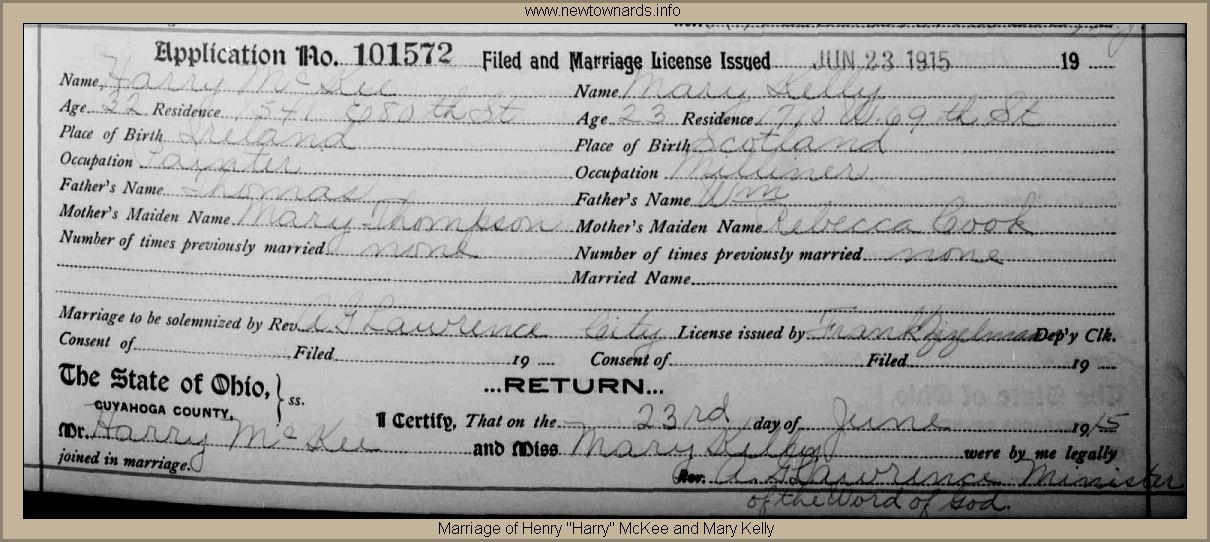 www.newtownards.info
Application No. 101572 Filed and Marriage License Issued JUN 23 1915 19
Name Harry McKee Name Mary Kelly
Age 22 Residence 1541 E 80th St Age 23 Residence 1710 W. 69th St
Place of Birth Ireland Place of Birth Scotland
Occupation Painter Occupation Milliner
Father's Name Thomas Father's Name Wm
Mother's Maiden Name Mary Thompson Mother's Maiden Name Rebecca Cook
Number of times previously married none Number of times previously married none
Married Name
Marriage to be solemnized by Rev A G Lawrence City License issued by Frank Dep'y Clk.
Consent of Filed 19 Consent of Filed 19
The State of Ohio, } ss. ...RETURN...
CUYAHOGA COUNTY,
I Certify, That on the 23rd day of June 1915
Mr. Harry McKee and Miss Mary Kelly were by me legally
joined in marriage. Rev. A. G Lawrence Minister
of the Word of God.
Marriage of Henry "Harry" McKee and Mary Kelly